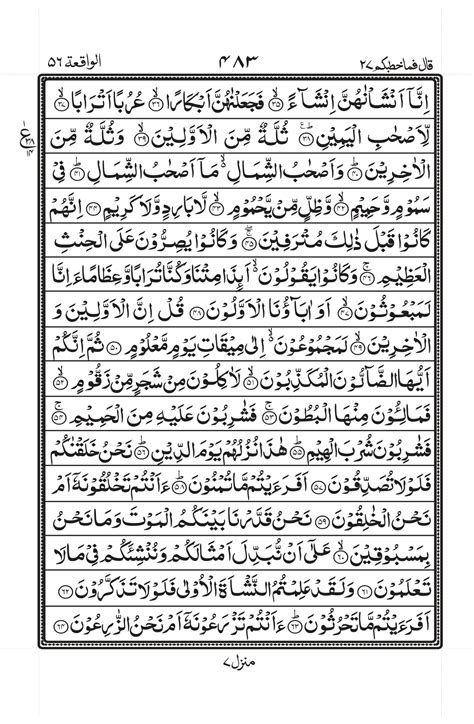 قال فما خطبكم ٢٧ ٤٨٣ الواقعة ٥٦
اِنَّاۤ اَنْشَاْنٰهُنَّ اِنْشَآءً ﴿۳۵﴾ فَجَعَلْنٰهُنَّ اَبْكَارًا ﴿۳۶﴾ عُرُبًا اَتْرَابًا ﴿۳۷﴾
لِّاَصْحٰبِ الْيَمِيْنِ ﴿۳۸﴾ ثُلَّةٌ مِّنَ الْاَوَّلِيْنَ ﴿۳۹﴾ وَثُلَّةٌ مِّنَ
الْاٰخِرِيْنَ ﴿۴۰﴾ وَاَصْحٰبُ الشِّمَالِ مَاۤ اَصْحٰبُ الشِّمَالِ ﴿۴۱﴾ فِىْ
سَمُوْمٍ وَّحَمِيْمٍ ﴿۴۲﴾ وَّظِلٍّ مِّنْ يَّحْمُوْمٍ ﴿۴۳﴾ لَّا بَارِدٍ وَّلَا كَرِيْمٍ ﴿۴۴﴾ اِنَّهُمْ
كَانُوْا قَبْلَ ذٰلِكَ مُتْرَفِيْنَ ﴿۴۵﴾ وَكَانُوْا يُصِرُّوْنَ عَلَى الْحِنْثِ
الْعَظِيْمِ ﴿۴۶﴾ وَكَانُوْا يَقُوْلُوْنَ اَىِٕذَا مِتْنَا وَكُنَّا تُرَابًا وَّعِظَامًا ءَاِنَّا
لَمَبْعُوْثُوْنَ ﴿۴۷﴾ اَوَاٰبَآؤُنَا الْاَوَّلُوْنَ ﴿۴۸﴾ قُلْ اِنَّ الْاَوَّلِيْنَ وَ
الْاٰخِرِيْنَ ﴿۴۹﴾ لَمَجْمُوْعُوْنَ اِلٰى مِيْقَاتِ يَوْمٍ مَّعْلُوْمٍ ﴿۵۰﴾ ثُمَّ اِنَّكُمْ
اَيُّهَا الضَّآلُّوْنَ الْمُكَذِّبُوْنَ ﴿۵۱﴾ لَاٰكِلُوْنَ مِنْ شَجَرٍ مِّنْ زَقُّوْمٍ ﴿۵۲﴾
فَمَالِـُٔوْنَ مِنْهَا الْبُطُوْنَ ﴿۵۳﴾ فَشٰرِبُوْنَ عَلَيْهِ مِنَ الْحَمِيْمِ ﴿۵۴﴾
فَشٰرِبُوْنَ شُرْبَ الْهِيْمِ ﴿۵۵﴾ هٰذَا نُزُلُهُمْ يَوْمَ الدِّيْنِ ﴿۵۶﴾ نَحْنُ خَلَقْنٰكُمْ
فَلَوْلَا تُصَدِّقُوْنَ ﴿۵۷﴾ اَفَرَءَيْتُمْ مَّا تُمْنُوْنَ ﴿۵۸﴾ ءَاَنْتُمْ تَخْلُقُوْنَهٗۤ اَمْ
نَحْنُ الْخٰلِقُوْنَ ﴿۵۹﴾ نَحْنُ قَدَّرْنَا بَيْنَكُمُ الْمَوْتَ وَمَا نَحْنُ
بِمَسْبُوْقِيْنَ ﴿۶۰﴾ عَلٰۤى اَنْ نُّبَدِّلَ اَمْثَالَكُمْ وَنُنْشِئَكُمْ فِىْ مَا لَا
تَعْلَمُوْنَ ﴿۶۱﴾ وَلَقَدْ عَلِمْتُمُ النَّشْاَةَ الْاُوْلٰى فَلَوْلَا تَذَكَّرُوْنَ ﴿۶۲﴾
اَفَرَءَيْتُمْ مَّا تَحْرُثُوْنَ ﴿۶۳﴾ ءَاَنْتُمْ تَزْرَعُوْنَهٗۤ اَمْ نَحْنُ الزّٰرِعُوْنَ ﴿۶۴﴾
منزل ٧